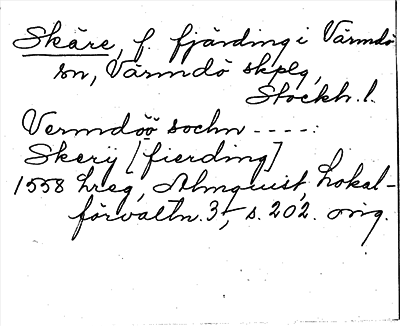 Skäre, f. fjärding i Värmdö
sn, Värmdö skplg,
Stockh. l.
Vermdöö sochn ----:
Skerij [fierding]
1558 hreg, Almquist, Lokal-
förvaltn. 3, s. 202. orig.